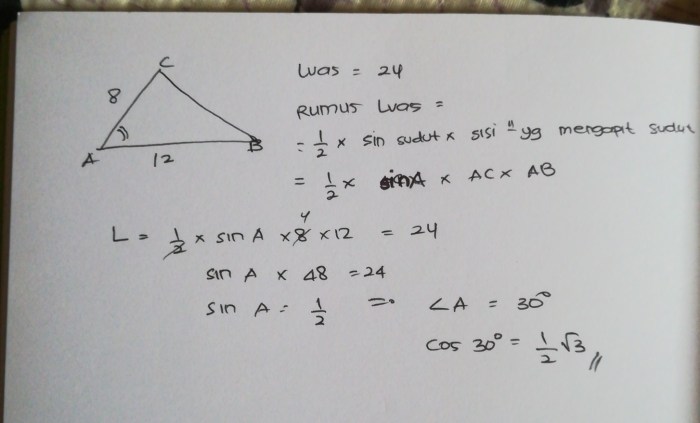 C
8
A
12
B
Luas = 24
Rumus Luas =
= 1/2 × sin sudut × sisi" yg mengapit sudut
= 1/2 × sin A × AC × AB
4
L = 1/2 × sin A × 8 × 12 = 24
sin A × 48 = 24
sin A = 1/2 => ∠A = 30°
cos 30° = 1/2 √3 //